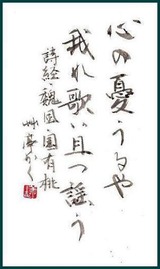 心の憂うるや
我れ歌い且つ謡う
詩経・魏風・園有桃